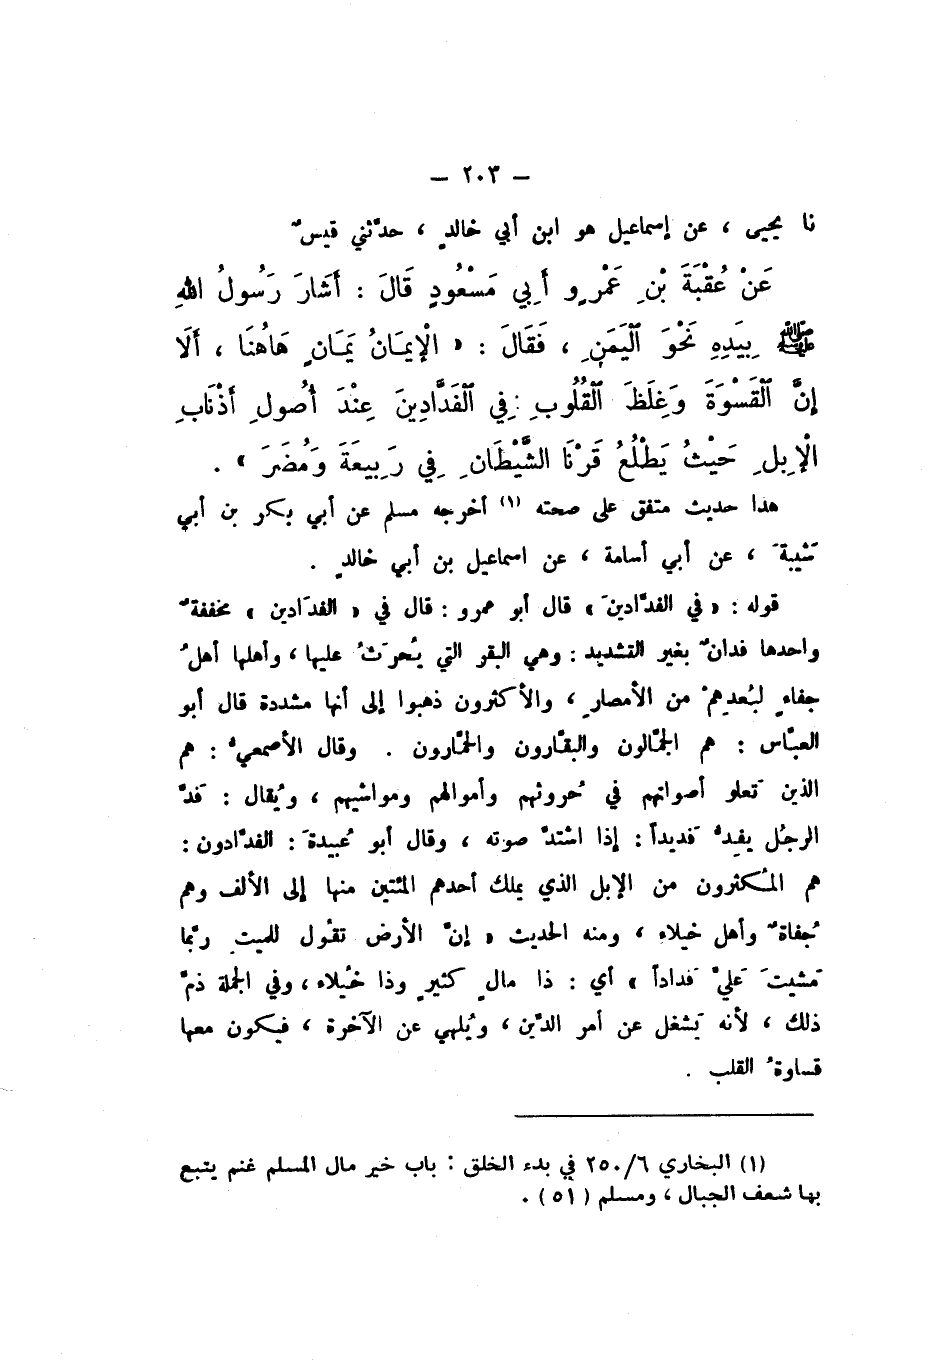 – ٢٠٣ –
نا يحيى ، عن إسماعيل هو ابن أبي خالدٍ ، حدَّثني قيسٌ
عَنْ عُقْبَةَ بْنِ عَمْرٍو أَبِي مَسْعُودٍ قَالَ : أَشَارَ رَسُولُ اللهِ
ﷺ بِيَدِهِ نَحْوَ ٱلْيَمَنِ ، فَقَالَ : « الْإِيمَانُ يَمَانٍ هَاهُنَا ، أَلَا
إِنَّ ٱلْقَسْوَةَ وَغِلَظَ ٱلْقُلُوبِ فِي ٱلْفَدَّادِينَ عِنْدَ أُصُولِ أَذْنَابِ
الْإِبِلِ حَيْثُ يَطْلُعُ قَرْنَا الشَّيْطَانِ فِي رَبِيعَةَ وَمُضَرَ » .
هذا حديث متفق على صحته (١) أخرجه مسلم عن أبي بكر بن أبي
شَيبةَ ، عن أبي أسامة ، عن اسماعيل بن أبي خالدٍ .
قوله : « في الفدَّادينَ » قال أبو عمرو : قال في « الفدَادين » مخففةٌ
واحدها فدانٌ بغير التشديد : وهي البقر التي يُحرَثُ عليها ، وأهلها أهلُ
جفاءٍ لبُعدِهمْ من الأمصارِ ، والأكثرون ذهبوا إلى أنها مشددة قال أبو
العبَّاس : هم الجمَّالون والبقَّارون والحمَّارون . وقال الأصمعيُّ : هم
الذين تَعلو أصواتهم في حُروثهم وأموالهم ومواشيهم ، ويُقال : فَدَّ
الرجُل يفِدُّ فَديداً : إذا اشتدَّ صوته ، وقال أبو عُبيدةَ : الفدَّادون :
هم المُكثرون من الإبل الذي يملك أحدهم المئتين منها إلى الألف وهم
جُفاةٌ وأهل خيلاء ، ومنه الحديث « إنَّ الأرض تقُول للميت ربَّما
مَشيتَ عَليَّ فَداداً » أي : ذا مالٍ كثيرٍ وذا خيُلاء ، وفي الجملة ذمَّ
ذلك ، لأنه يَشغل عن أمر الدِّين ، ويُلهي عن الآخرة ، فيكون معها
قساوةُ القلب .
(١) البخاري ٢٥٠/٦ في بدء الخلق : باب خير مال المسلم غنم يتبع
بها شعف الجبال ، ومسلم (٥١) .